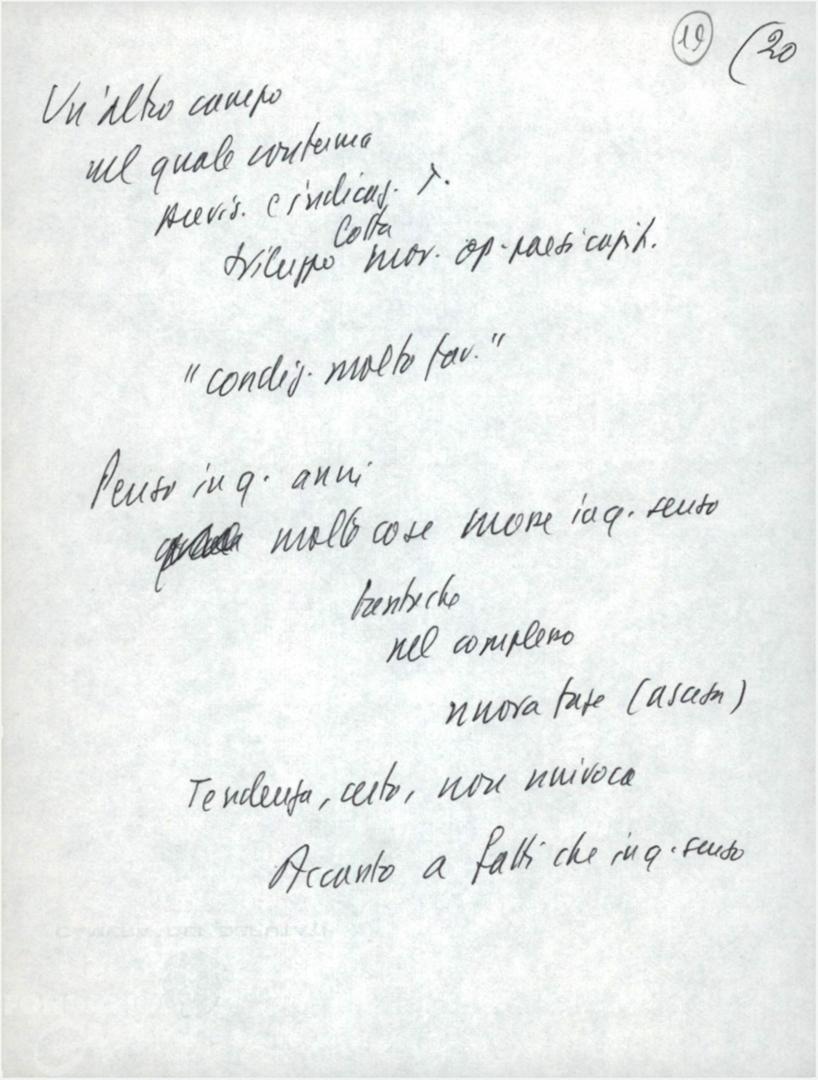 19 (20
Un'altro campo
nel quale conferma
previs. e indicaz. T.
lotta
sviluppo mov. op. paesi capit.
"condiz. molto fav."
Penso in q. anni
molte cose nuove in q. senso
tant'è che
nel complesso
nuova fase (ascesa)
Tendenza, certo, non univoca
Accanto a fatti che in q. senso